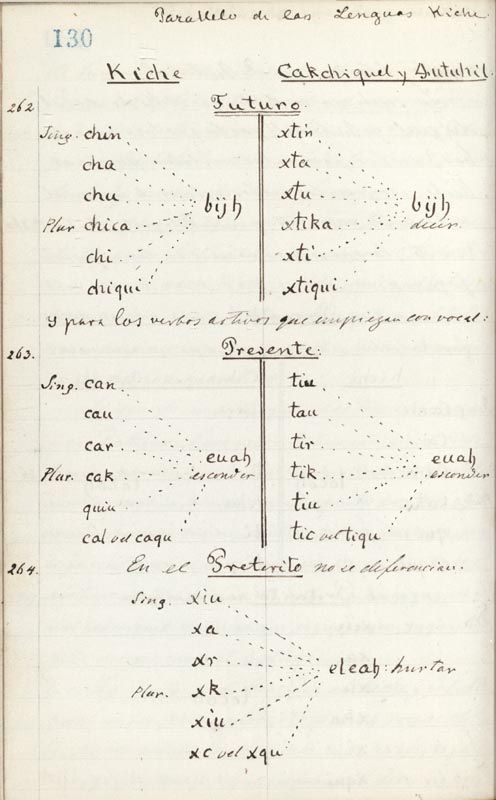 Parallelo de las Lenguas Kiche
130
Kiche Cakchiquel y Zutuhil.
262 Futuro.
Sing. chin xtin
cha xta
chu xtu
bijh bijh
Plur chica xtika decir.
chi xti
chiqui xtiqui
y para los verbos activos que empiezan con vocal:
263. Presente:
Sing. can tiu
cau tau
car tir
euah euah
Plur. cak esconder tik esconder
quiu tiu
cal vel caqu tic vel tiqu
264. En el Preterito no se diferencian:
Sing. xiu
xa
xr
eleah: hurtar
Plur. xk
xiu
xc vel xqu